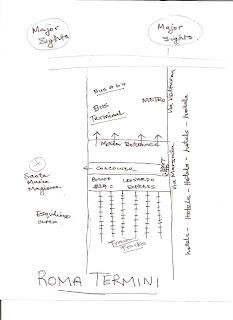 Major
Sights
Major
Sights
Bus #64
BUS
Terminal
METRO
Main Entrance
CONCOURSE
Santa
Maria
Magiorre
Esquilino
LEONARDO
EXPRESS
Train
Tracks
Via Marsala
hotels - Hotels - Hotels - hotels - hotels
ROMA TERMINI